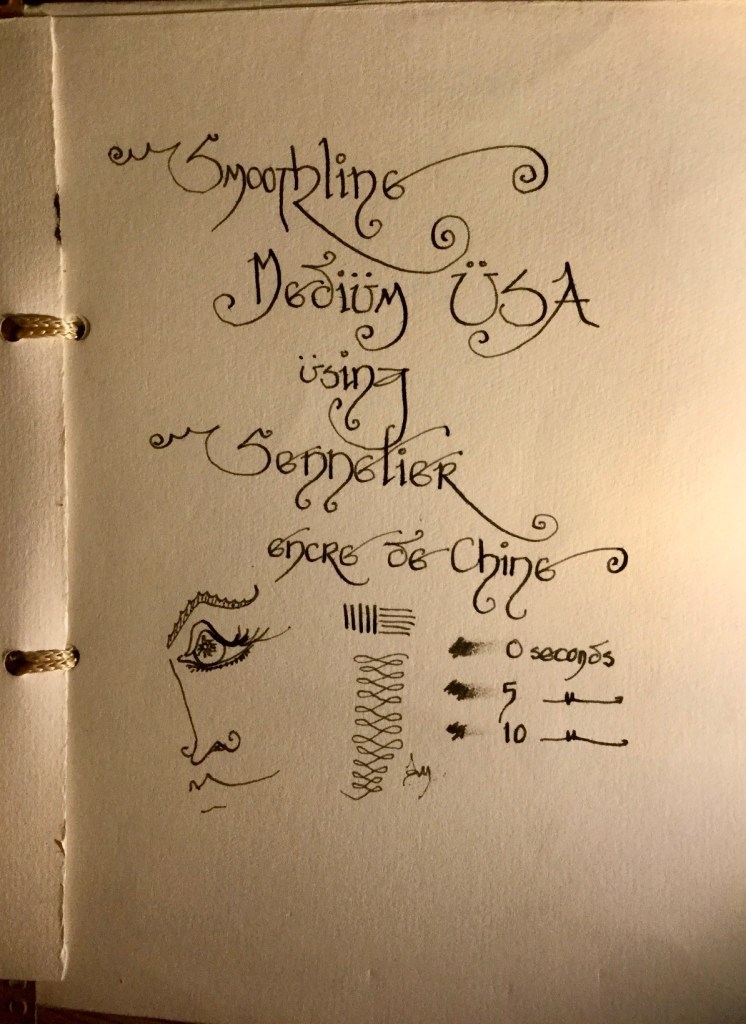 Smoothline
Medium ÜSA
üsing
Sennelier
encre de Chine
0 seconds
5 —"—
10 —"—